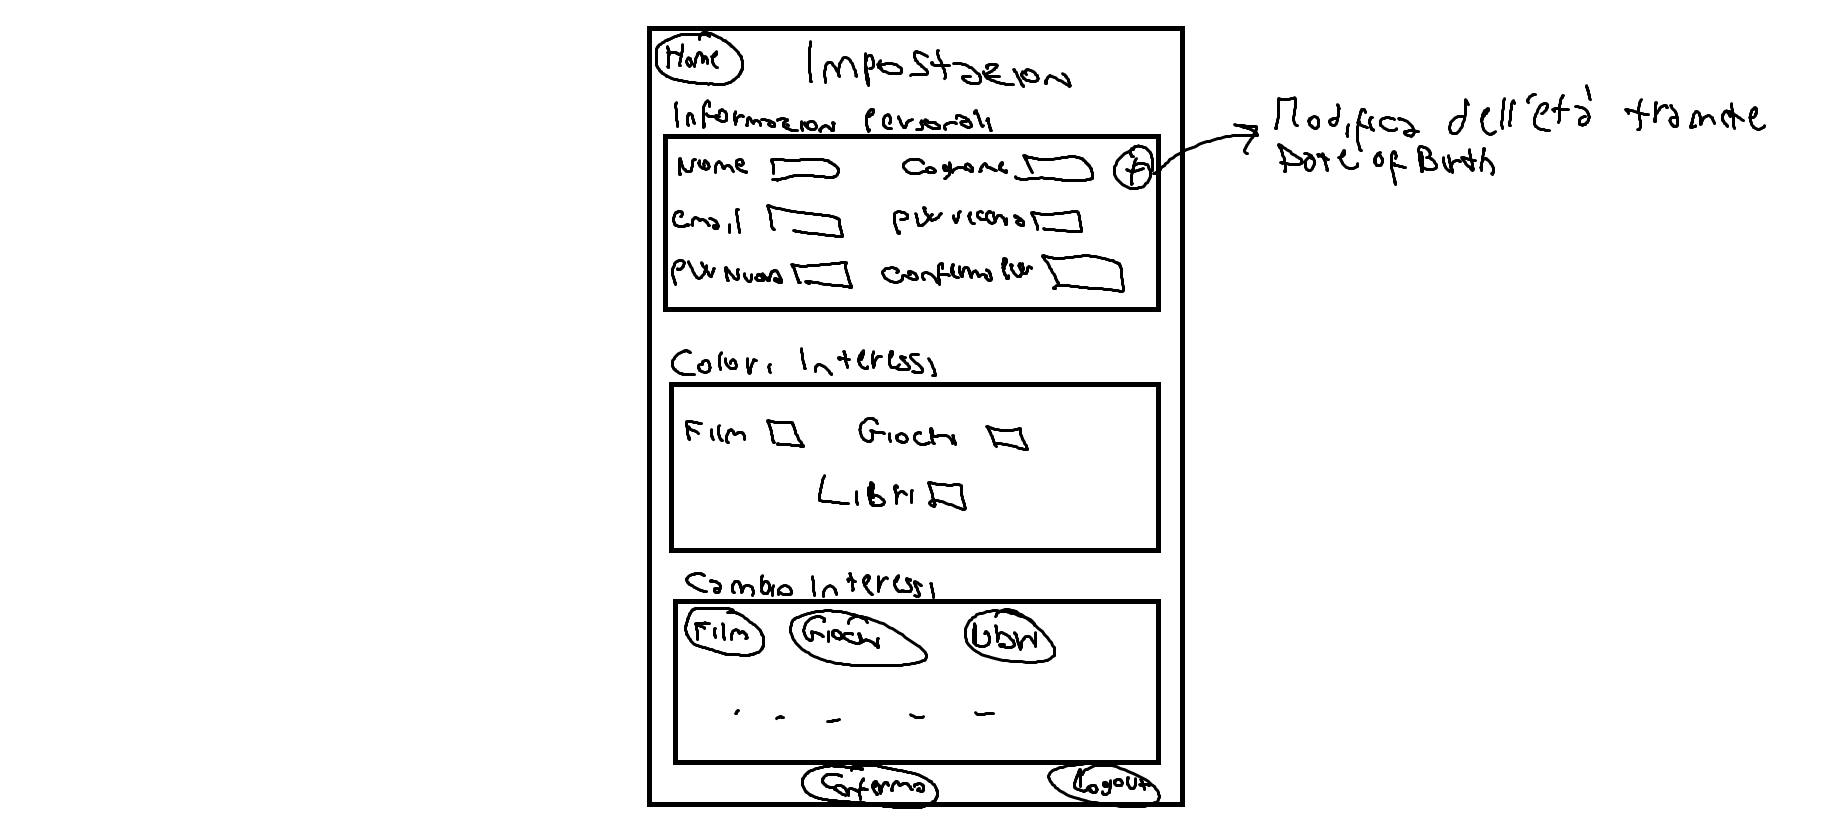 Home
Impostazioni
Informazioni Personali
Nome Cognome +
Email PW vecchia
PW Nuova Conferma PW
Modifica dell'età tramite
Date of Birth
Colori Interessi
Film Giochi
Libri
Cambio Interessi
Film Giochi Libri
Conferma Logout